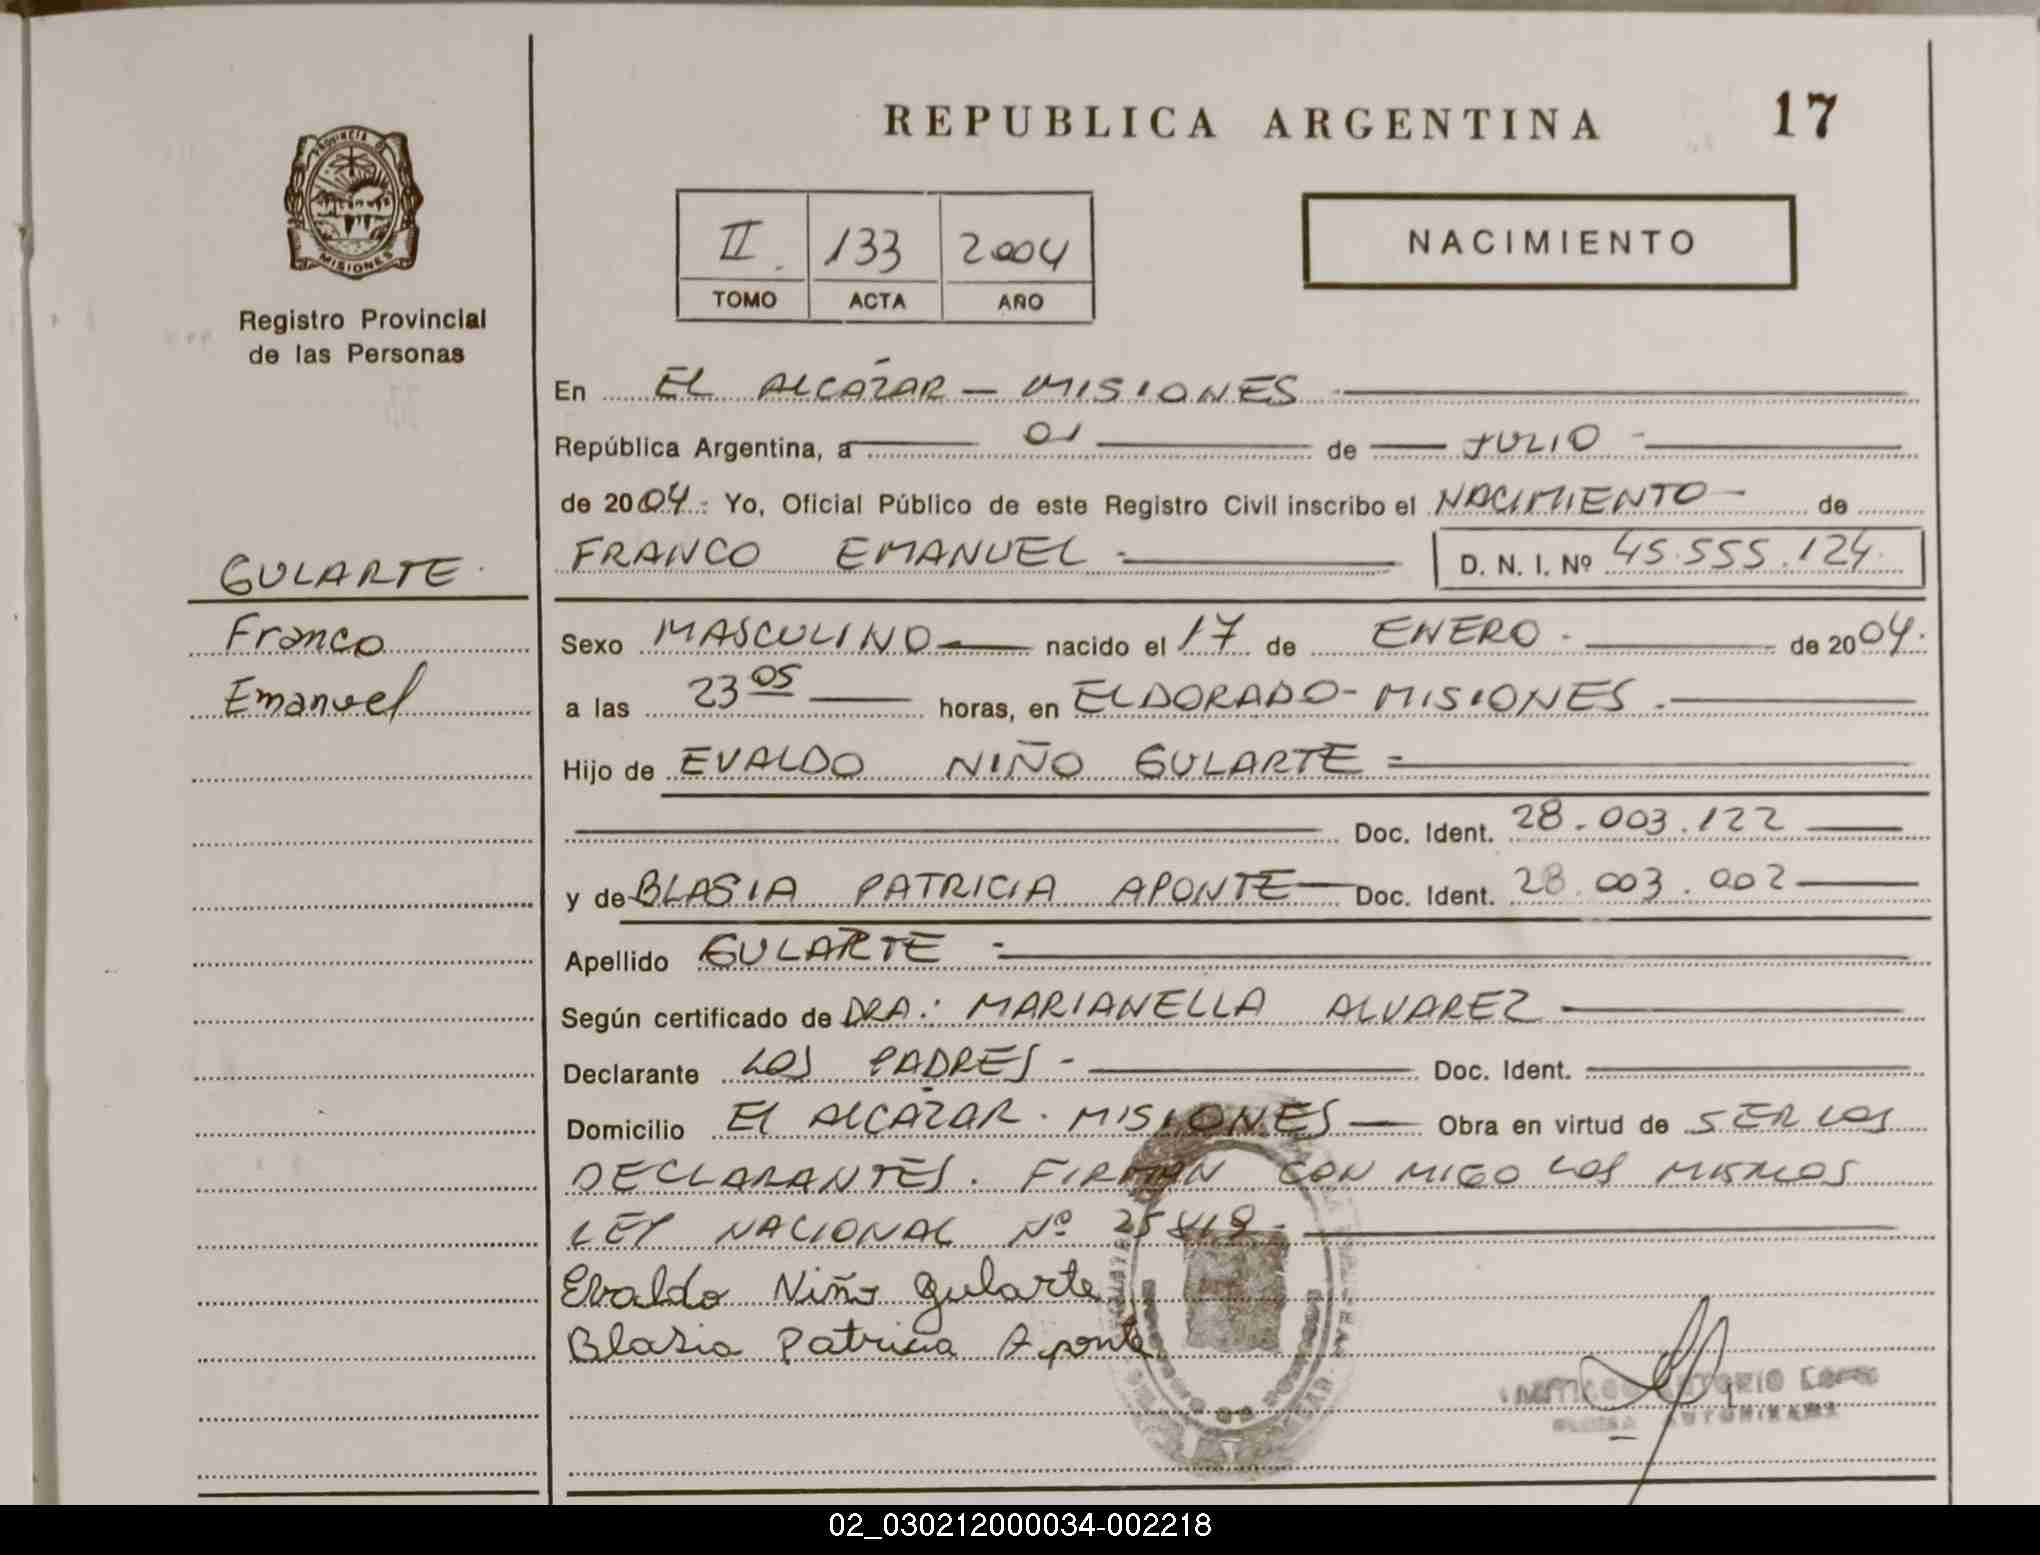 REPUBLICA ARGENTINA 17
PROVINCIA DE
MISIONES
Registro Provincial
de las Personas
II. 133 2004
TOMO ACTA AÑO
NACIMIENTO
En EL ALCAZAR - MISIONES
República Argentina, a 01 de JULIO
de 2004. Yo, Oficial Público de este Registro Civil inscribo el NACIMIENTO de
GULARTE
FRANCO EMANUEL D. N. I. Nº 45.555.124
Franco
Sexo MASCULINO nacido el 17 de ENERO de 2004.
Emanuel
a las 23 05 horas, en ELDORADO - MISIONES.
Hijo de EVALDO NIÑO GULARTE
Doc. Ident. 28.003.122
y de BLASIA PATRICIA APONTE Doc. Ident. 28.003.002
Apellido GULARTE
Según certificado de DRA: MARIANELLA ALVAREZ
Declarante LOS PADRES - Doc. Ident.
Domicilio El ALCAZAR. MISIONES Obra en virtud de SER LOS
DECLARANTES. FIRMAN CON MIGO LOS MISMOS
LEY NACIONAL Nº 25818.
Evaldo Niño Gularte
Blasia Patricia Aponte
ANTONIO
02_030212000034-002218